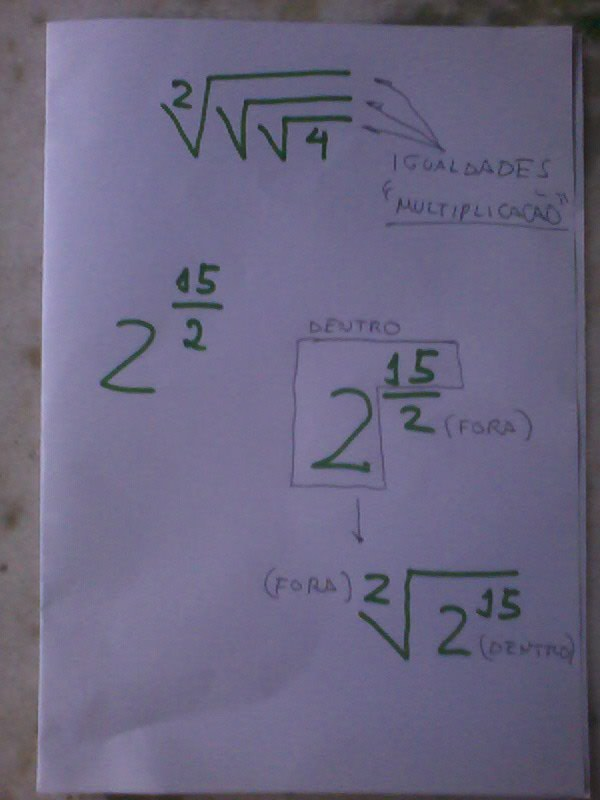 ²√√√4
IGUALDADES
"MULTIPLICAÇÃO"
2^(15/2)
DENTRO
2^(15/2) (FORA)
(FORA) ²√2^15 (DENTRO)